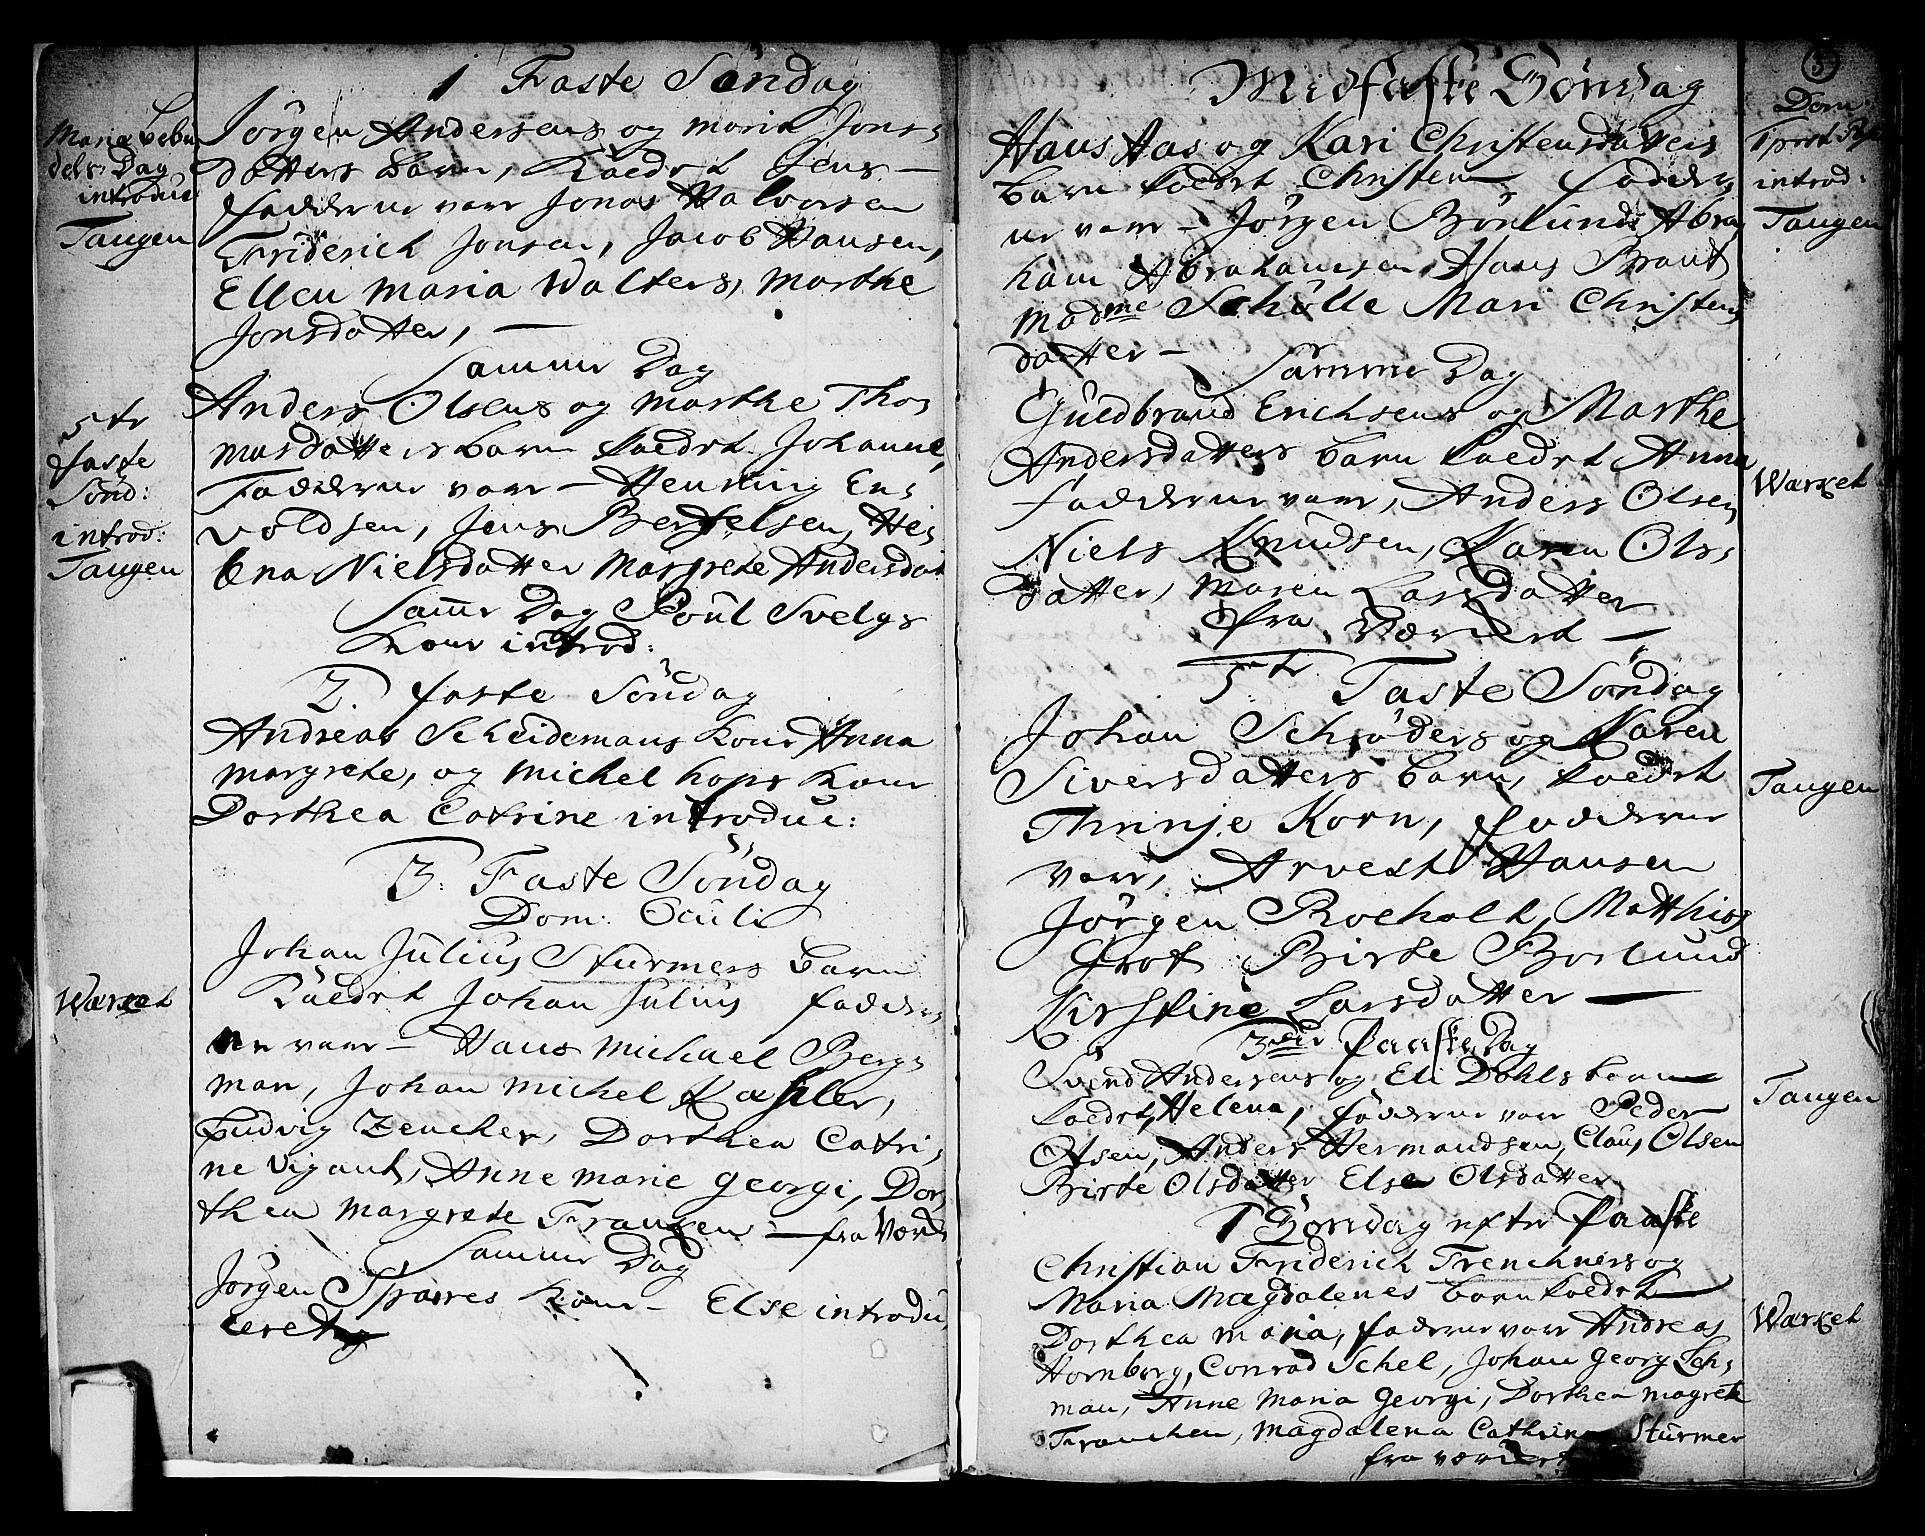 1 Faste Söndag
Mariæ bebu
dels Dag
introduc
Tangen
Jörgen Andersens og Maria Jons-
dotters barn, kaedet Jens —
fadderne vare Jonas Halvorsen
Friderich Jonsen, Jacob Hansen,
Ellen Maria Walters, Marthe
Jonsdatter, —
Samme Dag
5te
faste
Sönd:
introd:
Tangen
Anders Olsens og Marthe Tho-
masdatters barn kaedet Johanne,
Fadderne vare — Henning En-
voldsen, Jens Bertelsen, He-
lena Nielsdatter Margrete Andersdat
Samme Dag Poul Svelgs
Kone introd:
2. faste Söndag
Andreas Scheidemans Kone Anna
Margrete, og Michel Hops Kone
Dorthea Catrine introduc:
3. Faste Söndag
Dom: Oculi
Wærket
Johan Julius Sturmers barn
Kaedet Johan Julius fadder-
ne vare — Hans Michael Berg-
man, Johan Michel Kasler,
Ludvig Zencher, Dorthea Catri-
ne Vigant, Anne Marie Georgi, Dor-
thea Margrete Franzen — fra Værket
Samme Dag
Jörgen Sparres Kone — Else introdu-
ceret
3
Midfaste Söndag
Dom:
introd:
Tangen
Hans Aas og Kari Christensdatters
barn kaedet Christen, fadder-
ne vare — Jörgen Börlund, Abra-
ham Abrahamsen, Hans Brant
Madme Schölle Mari Christens
datter —
Samme Dag
Wærket
Guldbrand Erichsens og Marthe
Andersdatters barn kaedet Anna
fadderne vare, Anders Olsen
Niels Knudsen, Karen Ols-
datter, Maren Larsdatter
fra Værket —
5te Faste Söndag
Tangen
Johan Schröders og Karen
Siversdatters barn, kaedet
Thrinje Korn, fadderne
vare, Arvest Hansen
Jörgen Roeholt, Matthias
Grot Birte Borlund
Kirstine Larsdatter —
3die Paaske Dag
Tangen
Svend Andersens og Eli Dahls barn
kaedet, Helena, fadderne vare Peder
Olsen, Anders Hermandsen, Claus Olsen
Birte Olsdatter Else Olsdatter
1 Söndag efter Paaske
Wærket
Christian Friderich Trenchners og
Maria Magdalenes barn kaedet
Dorthea Maria, fadderne vare Andreas
Hornborg, Conrad Schel, Johan Georg Leh-
man, Anne Maria Georgi, Dorthea Magrete
Franchen, Magdalena Cathrina Sturmer
fra værket